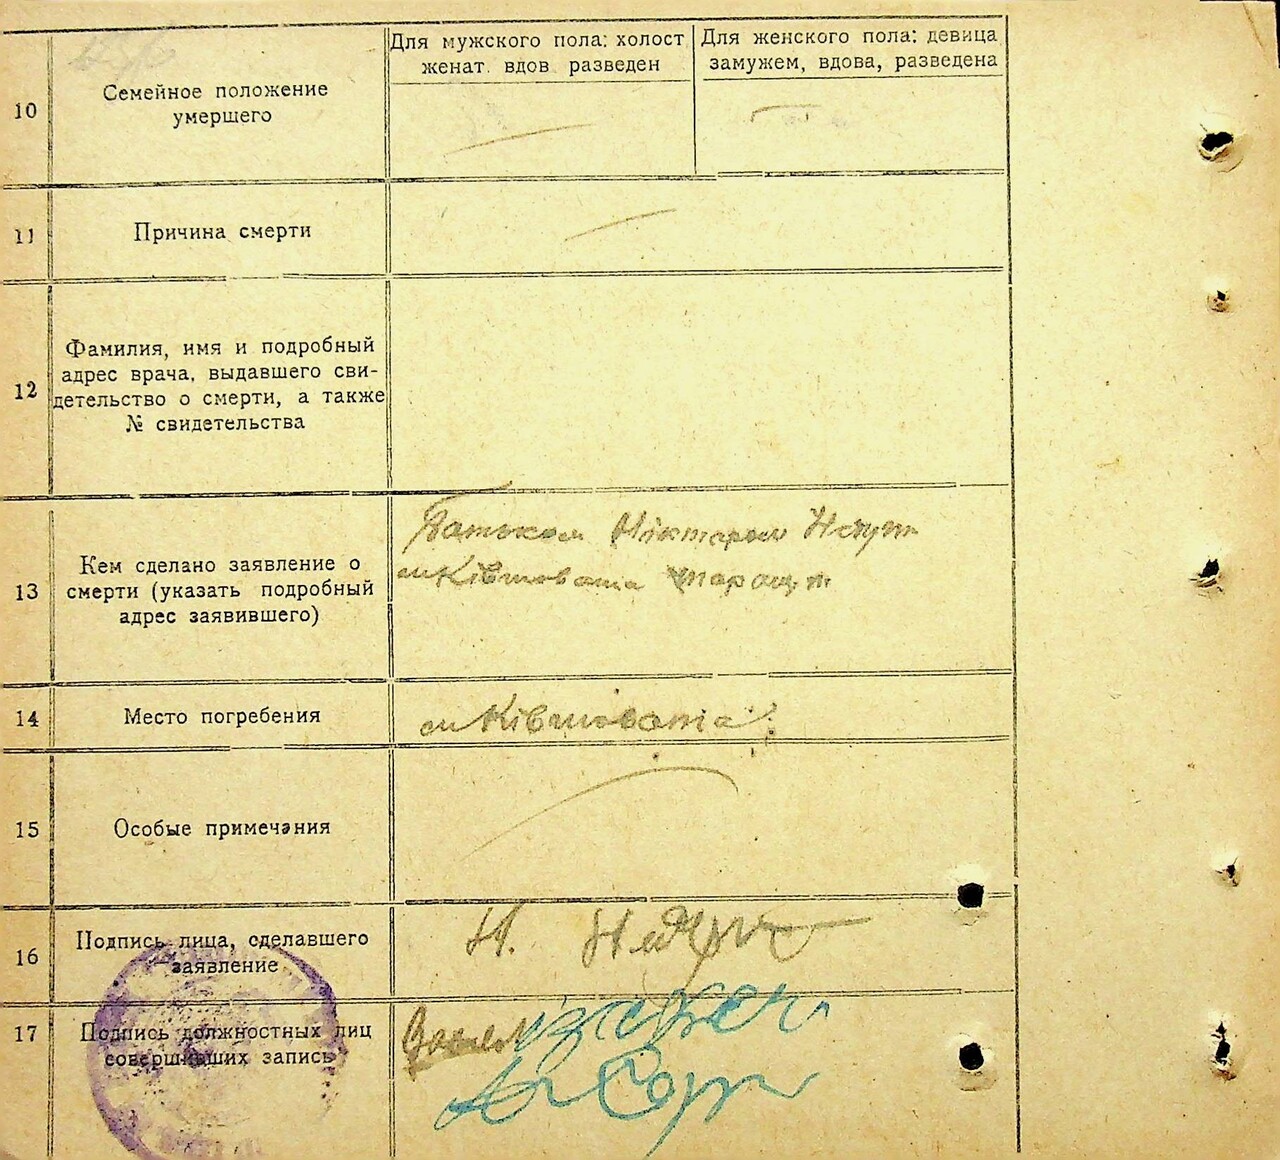 10
Семейное положение
умершего
Для мужского пола: холост
женат. вдов разведен
Для женского пола: девица
замужем, вдова, разведена
11
Причина смерти
12
Фамилия, имя и подробный
адрес врача, выдавшего сви-
детельство о смерти, а также
№ свидетельства
13
Кем сделано заявление о
смерти (указать подробный
адрес заявившего)
Батьком Ніктарем
м Ківшовата
14
Место погребения
м Ківшовата
15
Особые примечания
16
Подпись лица, сделавшего
заявление
Н.
17
Подпись должностных лиц
совершивших запись